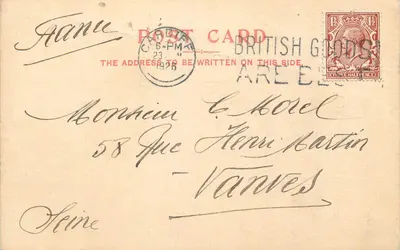 France
POST CARD
THE ADDRESS TO BE WRITTEN ON THIS SIDE
CARDIFF
5-PM
1928
BRITISH GOODS
ARE BEST
Monsieur C. Morel
58 Rue Henri Martin
Vanves
Seine